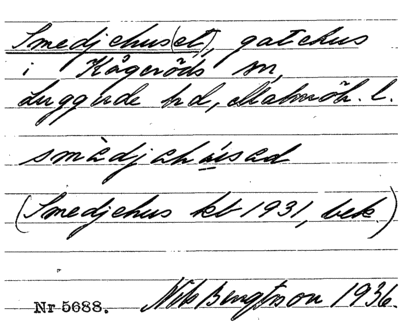 Smedjehus(et), gatehus
i Kågeröds sn,
Luggude hd, Malmöh. l.
smädjahúsad
(Smedjehus kb 1931, bek.)
Nr 5688. Nils Bengtsson 1936.